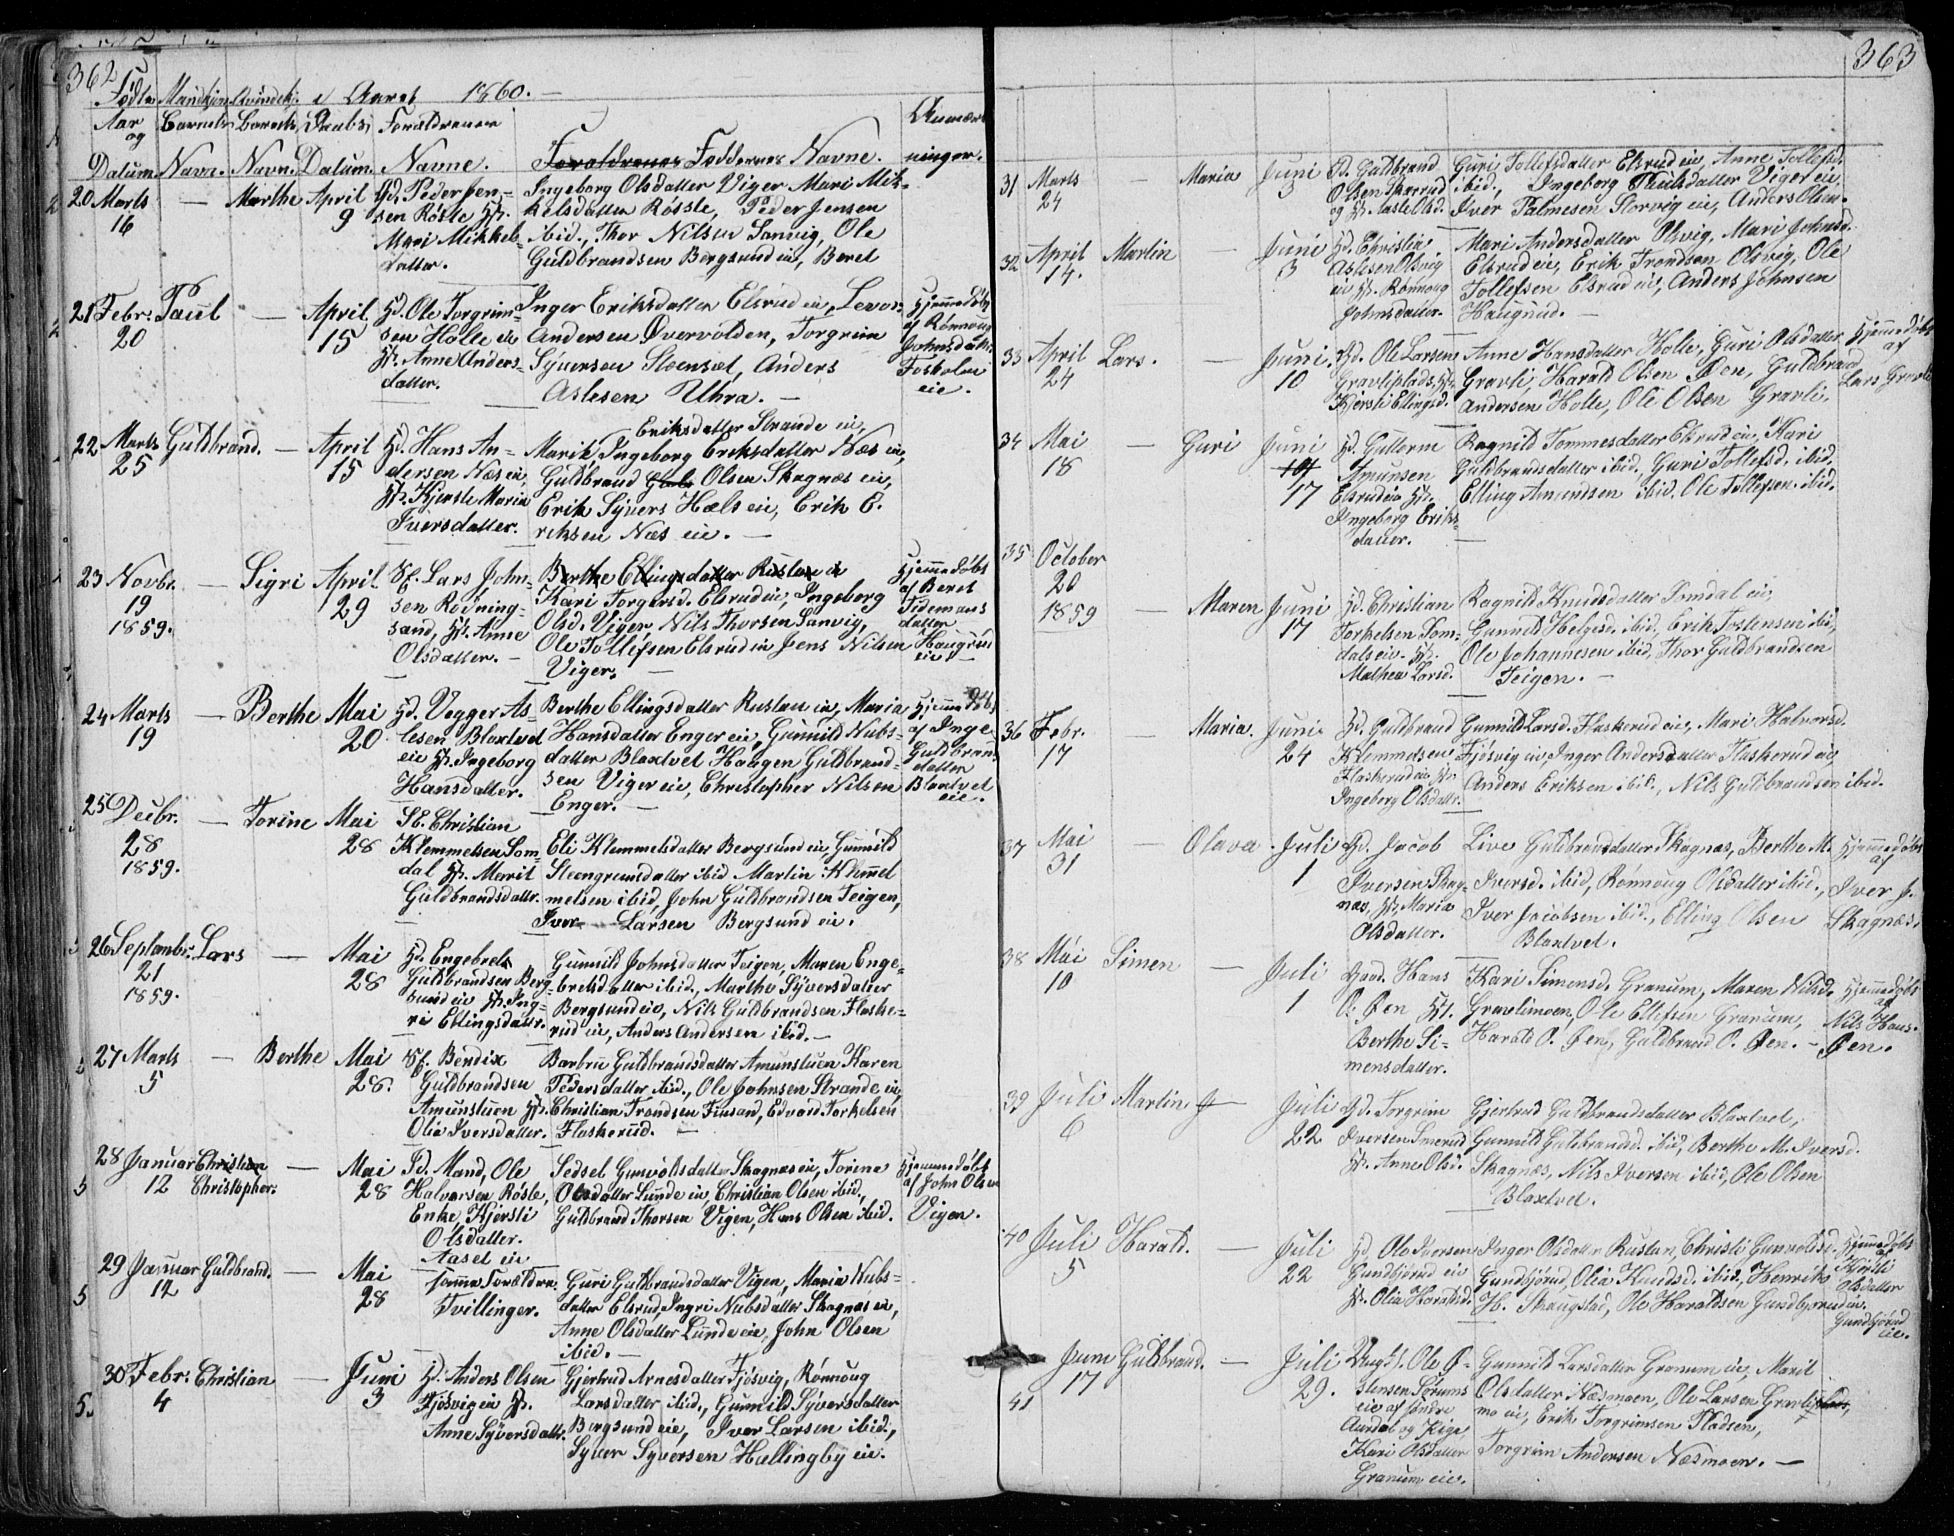 362
Födte Mandkjøn Qvindekj. i Aaret 1860.
Aar og Datum. Barnets Navn. Barnets Navn. Daabs Datum. Forældrenes Navne. Faddernes Navne. Anmærkninger.
20 Marts 16 — Marthe April 9
Hd. Peder Jen-
sen Røste H.
Mari Mikkels-
datter.
Ingeborg Olsdatter Viger Mari Mik-
kelsdatter Røste, Peder Jensen
ibid., Thor Nilsen Sanvig, Ole
Guldbrandsen Bergsund eie, Beret
21 Febr. 20 Paul — April 15
Hd. Ole Torgrim-
sen Holte eie
H. Anne Anders-
datter.
Inger Eriksdatter Elsrud eie, Levor
Andersen Øvervolden, Torgrim
Syversen Steensæt, Anders
Aslesen Uhra. —
Hjemmedøbt
af Rønnoug
Johnsdatter
Fosholm
eie.
22 Marts 25 Guldbrand. — April 15
Hd. Hans An-
dersen Næs eie,
H. Kjerste Maria
Iversdatter.
Eriksdatter Strande eie,
Marik Ingeborg Eriksdatter Næs eie,
Guldbrand Olsen Skagnæs eie,
Erik Syvers Hæls eie, Erik E.
riksen Næs eie. —
23 Novbr. 19 1859. — Sigri April 29
Lars John-
sen Rodning-
sand, H. Anne
Olsdatter. —
Berthe Ellingsdatter Rustan eie
Kari Torgersd. Elsrud eie, Ingeborg
Olsd. Viger, Nils Thorsen Sanvig,
Ole Tollefsen Elsrud eie Jens Nilsen
Viger. —
Hjemmedøbt
af Beret
Tidemans
datter
Haugrud
eie. —
24 Marts 19 — Berthe Mai 20
Hd. Vegger As-
lesen Blaxtvet
eie H. Ingeborg
Hansdatter.
Berthe Ellingsdatter Rustan eie, Maria
Hansdatter Enger eie, Gunild Nubs-
datter Blaxtvet Haagen Guldbrand-
sen Viger eie, Christopher Nilsen
Enger. —
Hjemmedøbt
af Inge
Guldbrands
datter
Blaxtvet
eie.
25 Decbr. 28 1859. — Torine Mai 28
SE. Christian
Klemmetsen Som-
dal H. Merrit
Guldbrandsdatter.
Eli Klemmetsdatter Bergsund eie, Gunnild
Steengrumdatter ibid Martin Klemmet
melsen ibid, John Guldbrandsen Teigen,
Iver Larsen Bergsund eie.
26 Septembr. 21 1859. Lars — Mai 28
Hd. Engebret
Guldbrandsen Berg-
sund eie H. Ing-
ri Ellingsdatter.
Gunnild Johnsdatter Teigen, Maren Enge-
bretsdatter ibid., Marthe Syversdatter
Bergsund eie, Nils Guldbrandsen Flaske-
rud eie, Anders Andersen ibid. —
27 Marts 5 — Berthe Mai 28.
Bendix
Guldbrandsen
Amunstuen H.
Olia Iversdatter.
Barbru Guldbrandsdatter Amunstuen Karen
Pedersdatter ibid., Ole Johnsen Strande eie,
Christian Trondsen Finsand, Edvard Torkelsen
Flaskerud. —
28 Januar 12 Christian Christopher. — Mai 28
Fd. Mand, Ole
Halvorsen Røste,
Enke Kjersti
Olsdatter.
Aaset eie
Sedsel Gunvoldsdatter Skagnæs eie, Torine
Olsdatter Lunde eie, Christian Olsen ibid.,
Guldbrand Thorsen Vigen, Hans Olsen ibid.
Hjemmedøbt
af John Olsen
Vigen.
29 Januar 12 Guldbrand. — Mai 28
samme Forældre.
Tvillinger.
Guri Guldbrandsdatter Vigen, Maria Nubs-
datter Elsrud, Ingri Nubsdatter Skagnæs eie,
Anne Olsdatter Lunde eie, John Olsen
ibid. —
30 Febr. 4 Christian — Juni 3
Hd. Anders Olsen
Fjøsvig eie H.
Anne Syversdatter.
Gjertrud Arnesdatter Fjøsvig, Rønnoug
Larsdatter ibid., Gunnild Syversdatter
Bergsund eie, Iver Larsen ibid.,
Syver Syversen Hællingby eie.
363
31 Marts 24 — Maria Juni 3
Hd. Guldbrand
Olsen Skærrud
og H. Aaste Olsd.
Guri Tollefsdatter Elsrud eie, Anne Tollefsd.
ibid., Ingeborg Paulsdatter Viger eie,
Iver Palmesen Storvig eie, Anders Olsen.
32 April 14. Martin — Juni 3
Hd. Christian
Aslesen Olsvig
eie H. Rønnoug
Johnsdatter.
Mari Andersdatter Olsvig, Mari Johnsd.
Elsrud eie, Erik Trondsen Olsvig, Ole
Tollefsen Elsrud eie, Anders Johnsen
Haugrud. —
33 April 24 Lars. — Juni 10
Hd. Ole Larsen
Gravliplads, H.
Kjersti Ellingsd.
Anne Hansdatter Holte, Guri Olsdatter
Gravli, Harald Olsen Øen, Guldbrand
Andersen Holte, Ole Olsen Gravli.
Hjemmedøbt
af
Lars Gravli
34 Mai 18 — Guri Juni 17
Hd. Guttorm
Amunsen
Elsrud eie H.
Ingeborg Eriks-
datter.
Ragnild Tommesdatter Elsrud eie, Kari
Guldbrandsdatter ibid., Guri Tollefsd. ibid.
Elling Amundsen ibid. Ole Tollefsen ibid.
35 October 20 1859 — Maren Juni 17
Hd. Christian
Torkelsen Som-
dals eie. H.
Mathea Larsd.
Ragnild Knudsdatter Somdal eie,
Gunnild Helgesd. ibid., Erik Tostensen ibi,
Ole Johannesen ibid, Thor Guldbrandsen
Teigen. —
36 Febr. 17 — Maria. Juni 24
Hd. Guldbrand
Klemmetsen
Flaskerud eie, H.
Ingeborg Olsdattr.
Gunnild Larsd. Flaskerud eie, Mari Halvorsd.
Fjøsvig eie Inger Andersdatter Flaskerud eie
Anders Eriksen ibid., Nils Guldbrandsen ibid.
37 Mai 31 — Olava. Juli 1
Hd. Jacob
Iversen Skag-
næs, H. Maria
Olsdatter.
Live Guldbrandsdatter Skagnæs, Berthe M.
Iversd. ibid, Rønnoug Olsdatter ibid.,
Iver Jacobsen ibid., Elling Olsen
Blaxtvet.
Hjemmedøbt
af
Iver J.
Skagnæs.
38 Mai 10 Simen — Juli 1
Gaard. Hans
O. Øen H.
Berthe Si-
mensdatter.
Kari Simensd. Granum, Maren Nilsd.
Gravlimoen, Ole Ellefsen Granum,
Harald O. Øen, Guldbrand O. Øen. —
Hjemmedøbt
af
Nils Hans.
Øen.
39 Juli 6 Martin — Juli 22
Hd. Torgrim
Iversen Smerud
H. Anne Olsd.
Gjertrud Guldbrandsdatter Blaxtvet,
Gunnild Guldbrandsd. ibid, Berthe M. Iversd.
Skagnæs, Nils Iversen ibid, Ole Olsen
Blaxtvet.
40 Juli 5 Harald. — Juli 22
Hd. Ole Iversen
Gundbjørud eie
H. Olia Haraldsd.
Inger Olsdatter Rustan, Christi Gunvoldsd.
Gundbjørud, Olia Knudsd. ibid, Henrik
H. Skaugstad, Ole Haraldsen Gundbjørud eie.
Hjemmedøbt
af
Kjersti
Olsdatter
Gundbjørud
eie.
41 Juni 17 Guldbrand. — Juli 29.
Ungk. Ole Ø-
stensen Sørums
eie af søndre
Aurdal og Pige
Kari Olsdatter
Granum eie.
Gunnild Larsdatter Granum eie, Marit
Olsdatter Næsmoen, Ole Larsen Gravli
mo eie, Erik Torgrimsen Plodsen,
Torgrim Andersen Næsmoen. —